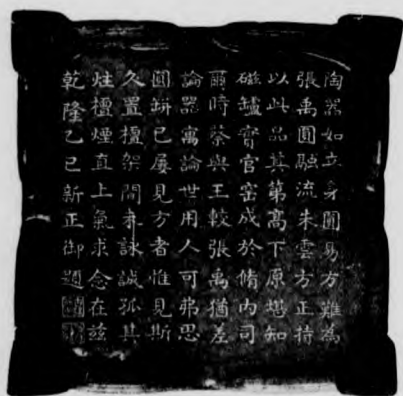 陶器如立身圓易方難為
張禹圓融流朱雲方正持
以此品其第高下原堪知
磁罏實官窑成於脩內司
爾時蔡與王較張禹猶差
論器寓論世用人可弗思
圓缾已屢見方者惟見斯
久置檀架間未詠誠孤其
炷檀煙直上氣求念在兹
乾隆乙巳新正御題